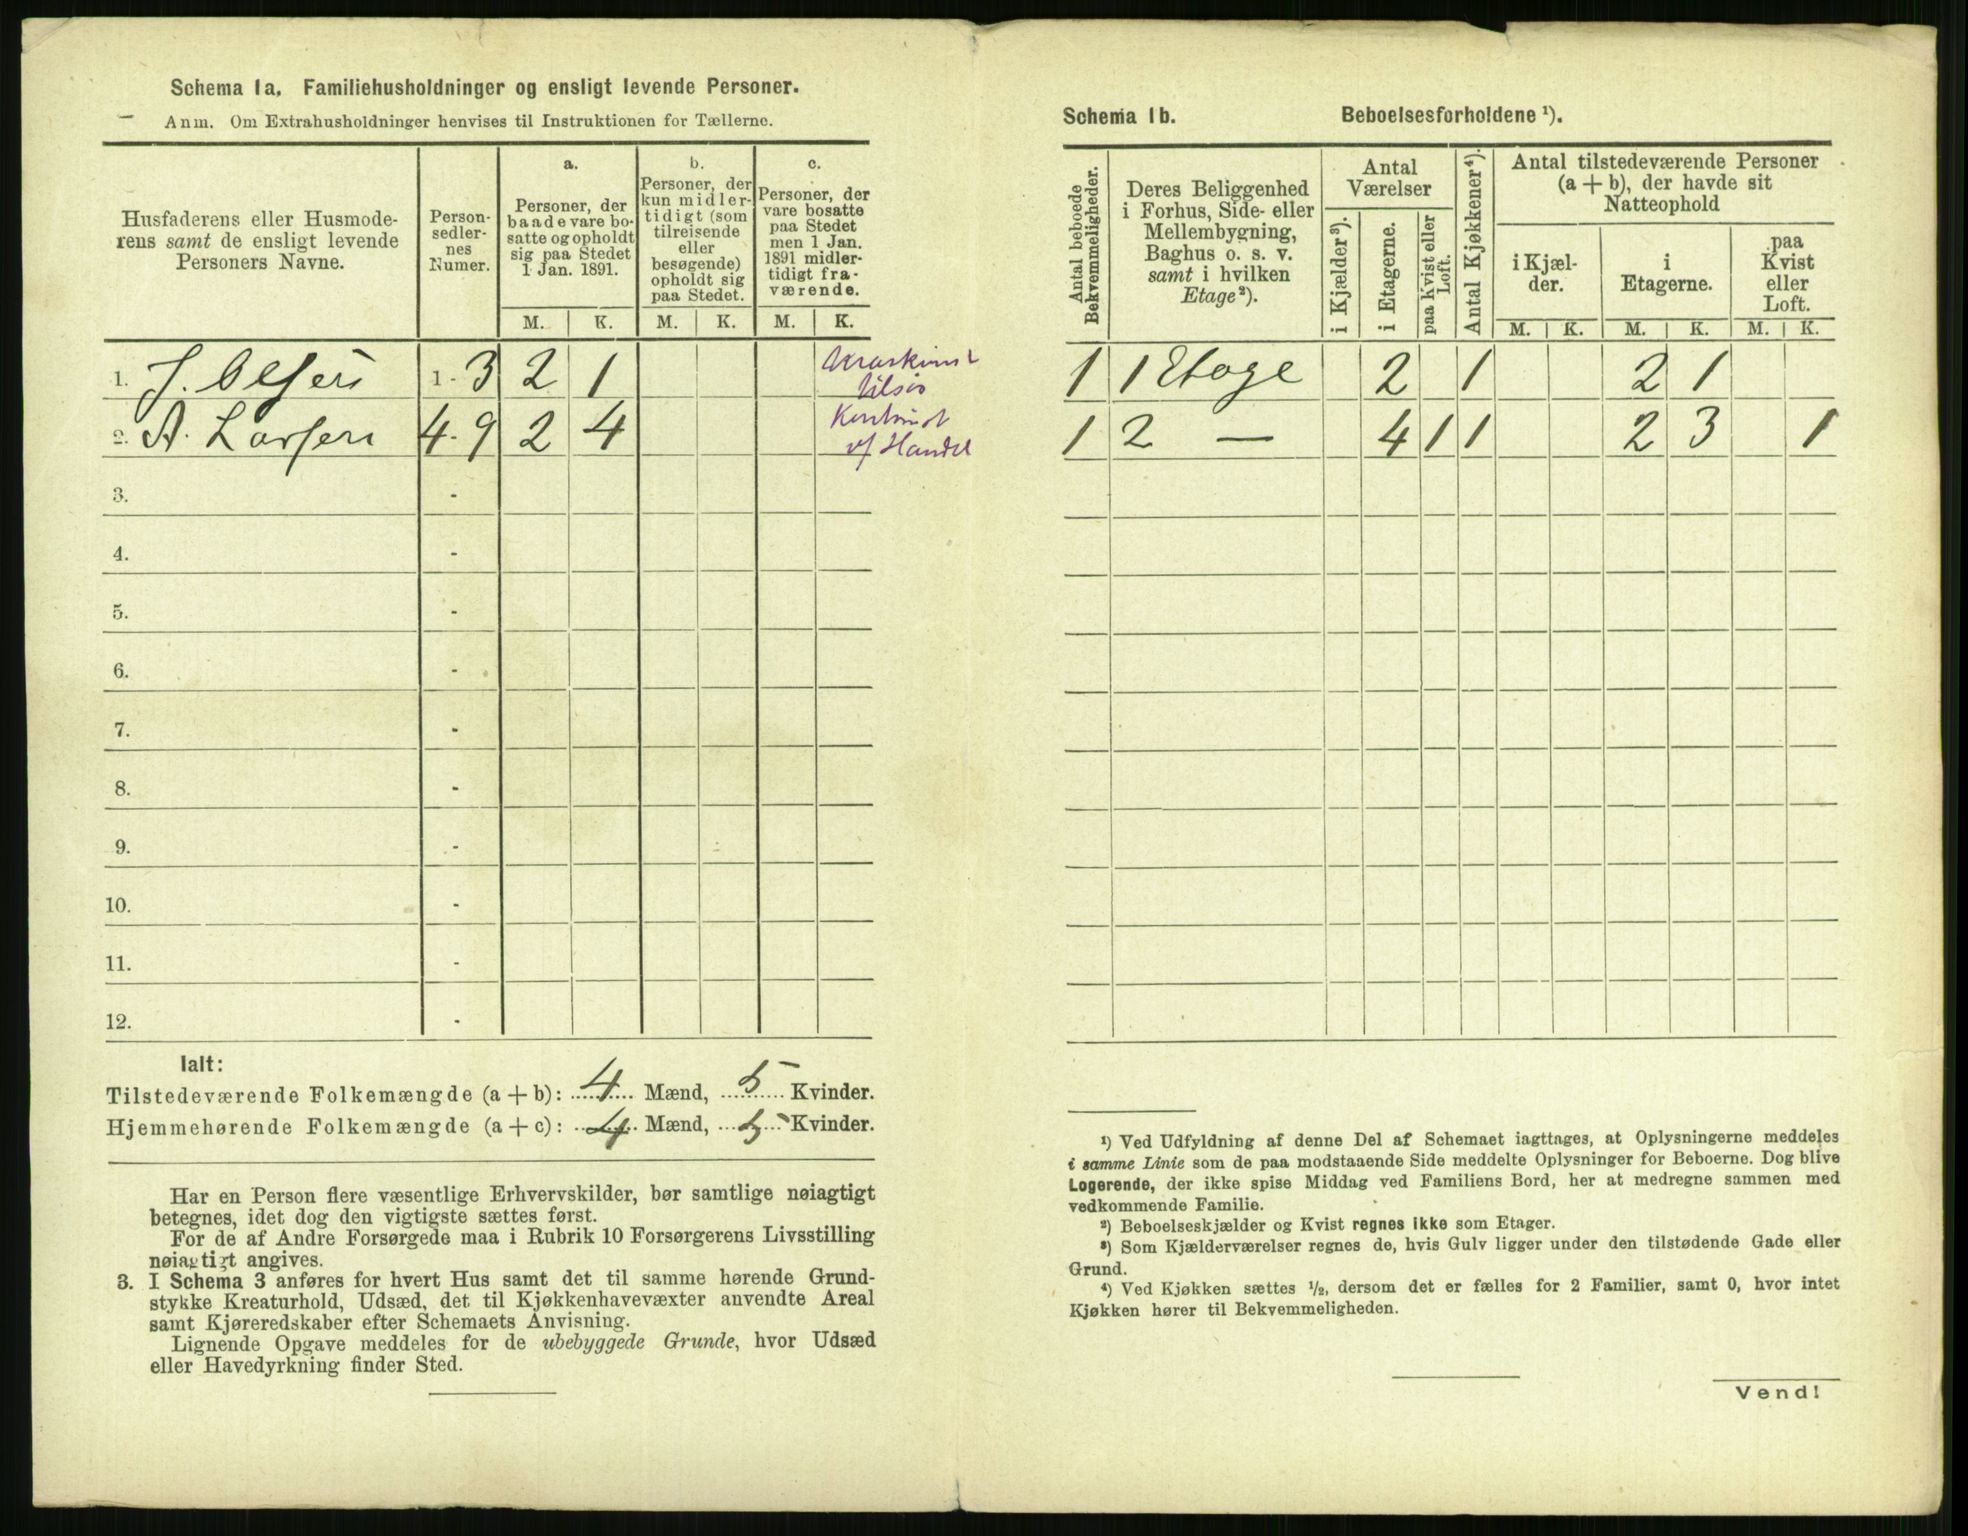 Schema 1a. Familiehusholdninger og ensligt levende Personer.
Anm. Om Extrahusholdninger henvises til Instruktionen for Tællerne.
Husfaderens eller Husmode-
rens samt de ensligt levende
Personers Navne.
Person-
sedler-
nes
Numer.
a.
Personer, der
baade vare bo-
satte og opholdt
sig paa Stedet
1 Jan. 1891.
b.
Personer, der
kun midler-
tidigt (som
tilreisende
eller
besøgende)
opholdt sig
paa Stedet.
c.
Personer, der
vare bosatte
paa Stedet
men 1 Jan.
1891 midler-
tidigt fra-
værende.
M. K. M. K. M. K.
1. J. Olsen 1-3 2 1
tilsø
2. A. Larsen 4-9 2 4
Kontorist
v/ Handel
3. -
4. -
5. -
6. -
7. -
8. -
9. -
10. -
11. -
12. -
Ialt:
Tilstedeværende Folkemængde (a+b): 4 Mænd, 5 Kvinder.
Hjemmehørende Folkemængde (a+c): 4 Mænd, 5 Kvinder.
Har en Person flere væsentlige Erhvervskilder, bør samtlige nøiagtigt
betegnes, idet dog den vigtigste sættes først.
For de af Andre Forsørgede maa i Rubrik 10 Forsørgerens Livsstilling
nøiagtigt angives.
3. I Schema 3 anføres for hvert Hus samt det til samme hørende Grund-
stykke Kreaturhold, Udsæd, det til Kjøkkenhavevæxter anvendte Areal
samt Kjøreredskaber efter Schemaets Anvisning.
Lignende Opgave meddeles for de ubebyggede Grunde, hvor Udsæd
eller Havedyrkning finder Sted.
Schema 1b. Beboelsesforholdene ¹).
Antal beboede
Bekvemmeligheder.
Deres Beliggenhed
i Forhus, Side- eller
Mellembygning,
Baghus o. s. v.
samt i hvilken
Etage²).
Antal
Værelser
i Kjælder³).
i Etagerne.
paa Kvist eller
Loft.
Antal Kjøkkener⁴).
Antal tilstedeværende Personer
(a + b), der havde sit
Natteophold
i Kjæl-
der.
i
Etagerne.
paa
Kvist
eller
Loft.
M. K. M. K. M. K.
1 1 Etage 2 1 2 1
1 2 — 4 1 1 2 3 1
¹) Ved Udfyldning af denne Del af Schemaet iagttages, at Oplysningerne meddeles
i samme Linie som de paa modstaaende Side meddelte Oplysninger for Beboerne. Dog blive
Logerende, der ikke spise Middag ved Familiens Bord, her at medregne sammen med
vedkommende Familie.
²) Beboelseskjælder og Kvist regnes ikke som Etager.
³) Som Kjælderværelser regnes de, hvis Gulv ligger under den tilstødende Gade eller
Grund.
⁴) Ved Kjøkken sættes ½, dersom det er fælles for 2 Familier, samt 0, hvor intet
Kjøkken hører til Bekvemmeligheden.
Vend!